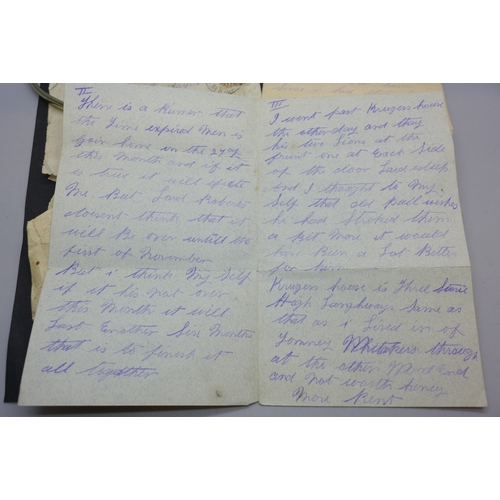 II
There is a Rumer that
the Time expired Men is
Goin home in the 24th
this Month and if it
is true it will
Me But Lord Roberts
doesent think that it
will Be over untill the
first of November
But i think My Self
if it his not over
this Month it will
Last Enother Six Months
that is to finesh it
all together
III
I went past Krugers house
the other day and they
his two Lions at the
frunt one at Each Side
of the door Laid
and I thought to My
Self that old Paul wishes
he had Stroked them
a Bit More it would
have Been a Lot Better
for him
Krugers house is Three
High Longways Same as
that as i Lived in of
Whitakers
at the other End
and not worth heney
More Rent